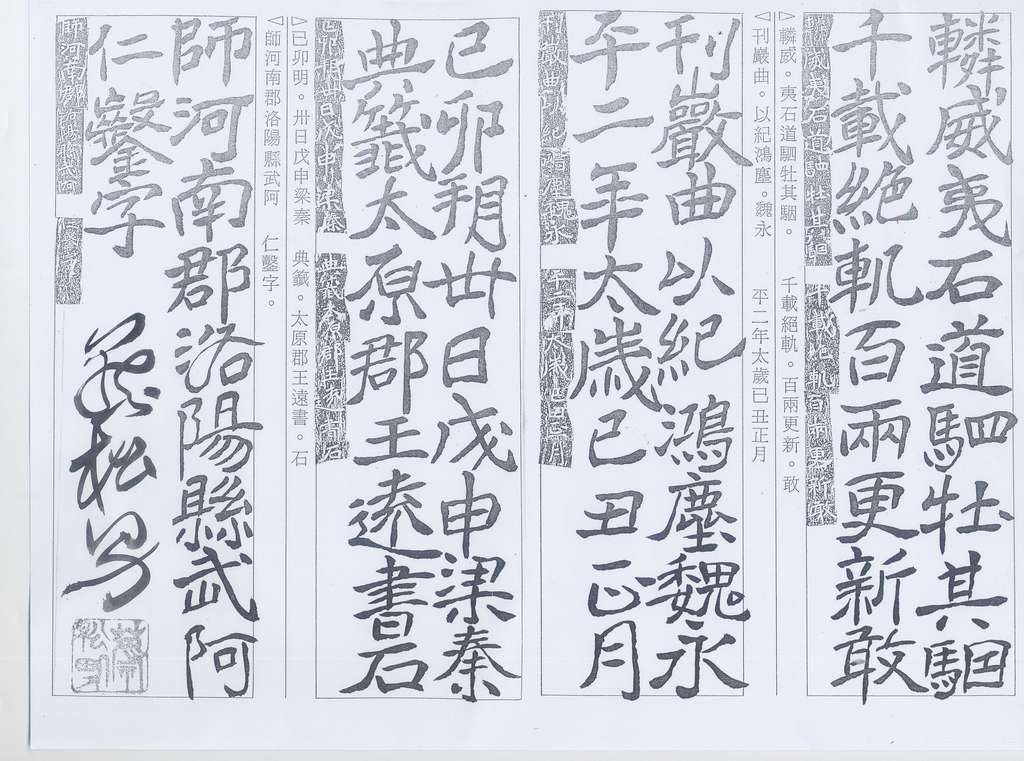 轔威夷石道駟牡其駰
千載絶軌百兩更新敢
▷轔威。夷石道駟牡其駰。　千載絕軌。百兩更新。敢
▷刊巖曲。以紀鴻塵。魏永　平二年太歲已丑正月
刊巖曲以紀鴻塵魏永
平二年太歲已丑正月
已卯朔卅日戊申梁秦
典籤太原郡王遠書石
▷已卯明。卅日戊申梁秦　典籤。太原郡王遠書。石
▷師河南郡洛陽縣武阿　仁鑿字。
師河南郡洛陽縣武阿
仁鑿字